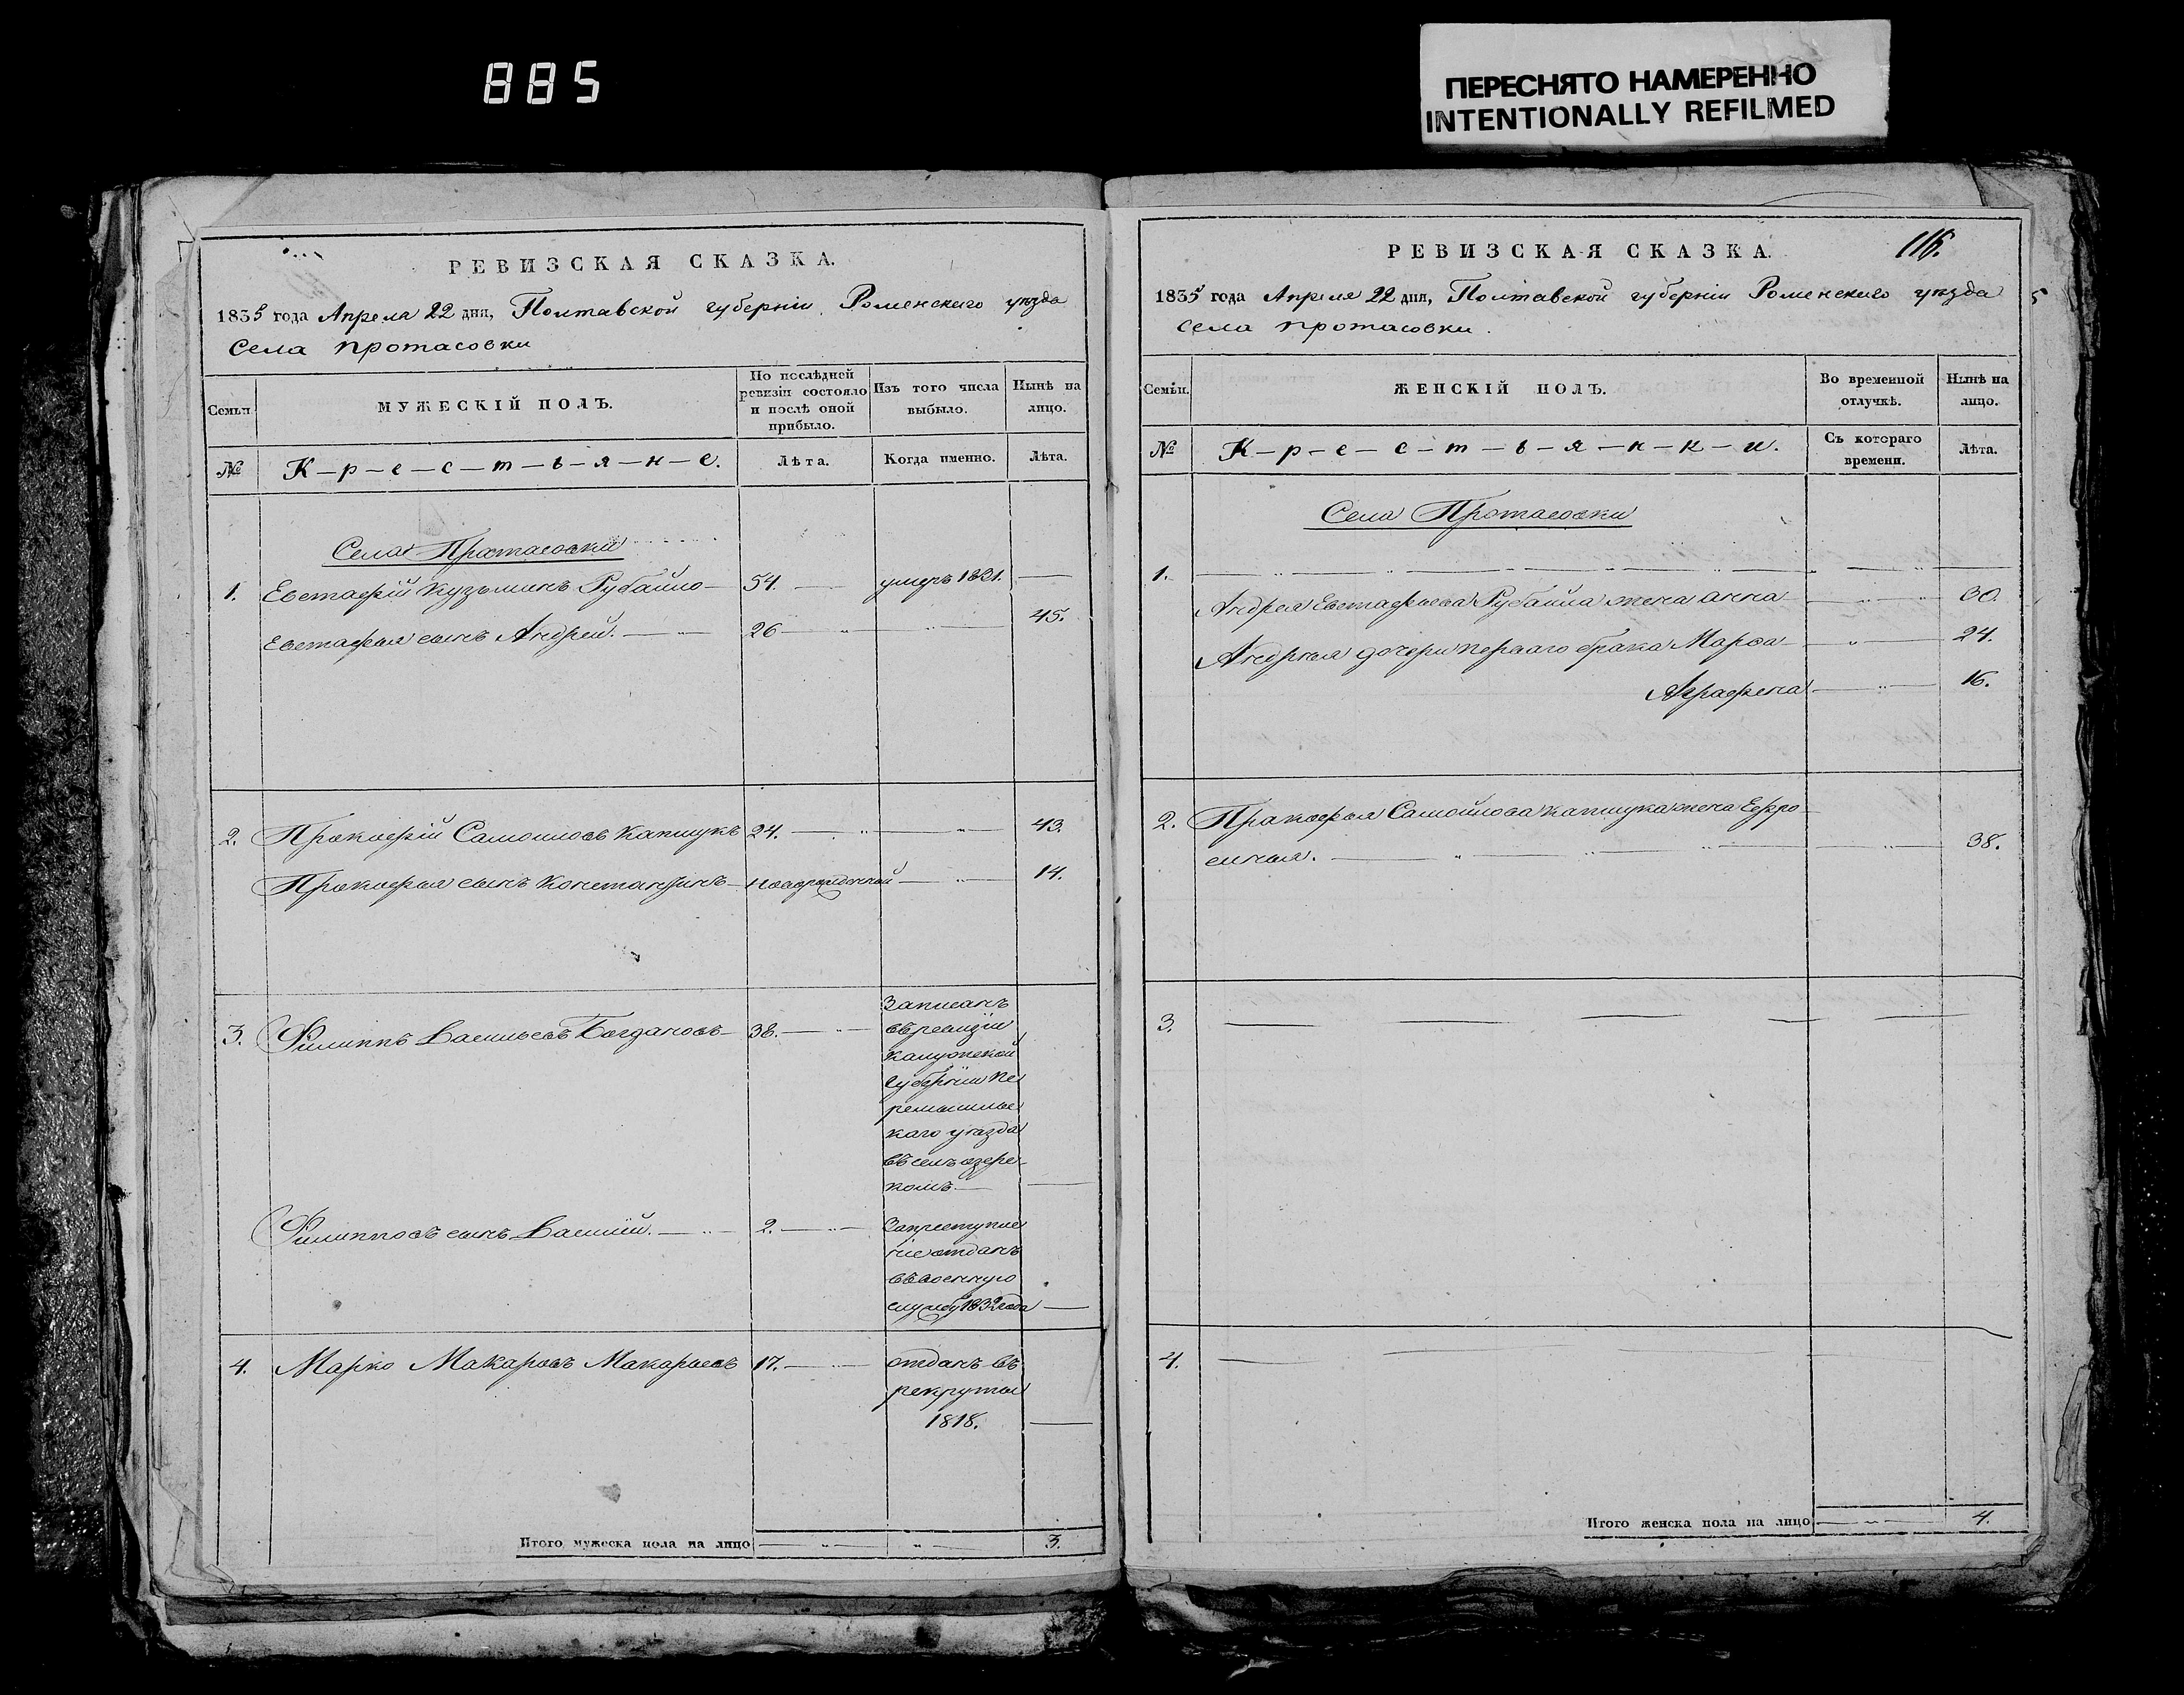 885
ПЕРЕСНЯТО НАМЕРЕННО
INTENTIONALLY REFILMED
РЕВИЗСКАЯ СКАЗКА.
1835 года Апреля 22 дня, Полтавской губерніи Роменскаго уѣзда
села протасовки
Семьи.
МУЖЕСКІЙ ПОЛЪ.
По послѣдней ревизіи состояло и послѣ оной прибыло.
Изъ того числа выбыло.
Нынѣ на лицо.
№
К-р-е-с-т-ь-я-н-е.
Лѣта.
Когда именно.
Лѣта.
Села Протасовки
1. Евстафій Кузьминъ Рубайло 54. умеръ 1821.
Евстафья сынъ Андрей. 26 45.
2. Прокофій Самоиловъ Капшукъ 24. 43.
Прокофья сынъ Константинъ новорожденной 14.
3. Филиппъ Васильевъ Богдановъ 38. Записанъ
въ ревизіи
калужской
губерніи Пе
ремышльс
каго уѣзда
въ селѣ озерс
комъ
Филиповъ сынъ Василій. 2. За преступле
ніе отданъ
въ военную
службу 1832 года
4. Марко Макаровъ Макарьевъ 17. отданъ въ
рекруты
1818.
Итого мужеска пола на лицо 3.
РЕВИЗСКАЯ СКАЗКА.
116.
1835 года Апреля 22 дня, Полтавской губерніи Роменскаго уѣзда
села протасовки.
Семьи.
ЖЕНСКІЙ ПОЛЪ.
Во временной отлучкѣ.
Нынѣ на лицо.
№
К-р-е-с-т-ь-я-н-к-и.
Съ котораго времени.
Лѣта.
Села Протасовки
1.
Андрея Евстафьева Рубайла жена анна 30.
Андрея дочери перваго брака Марфа 24.
Аграфена 16.
2. Прокофья Самойлова капшука жена Ефро
синья. 38.
3.
4.
Итого женска пола на лицо 4.